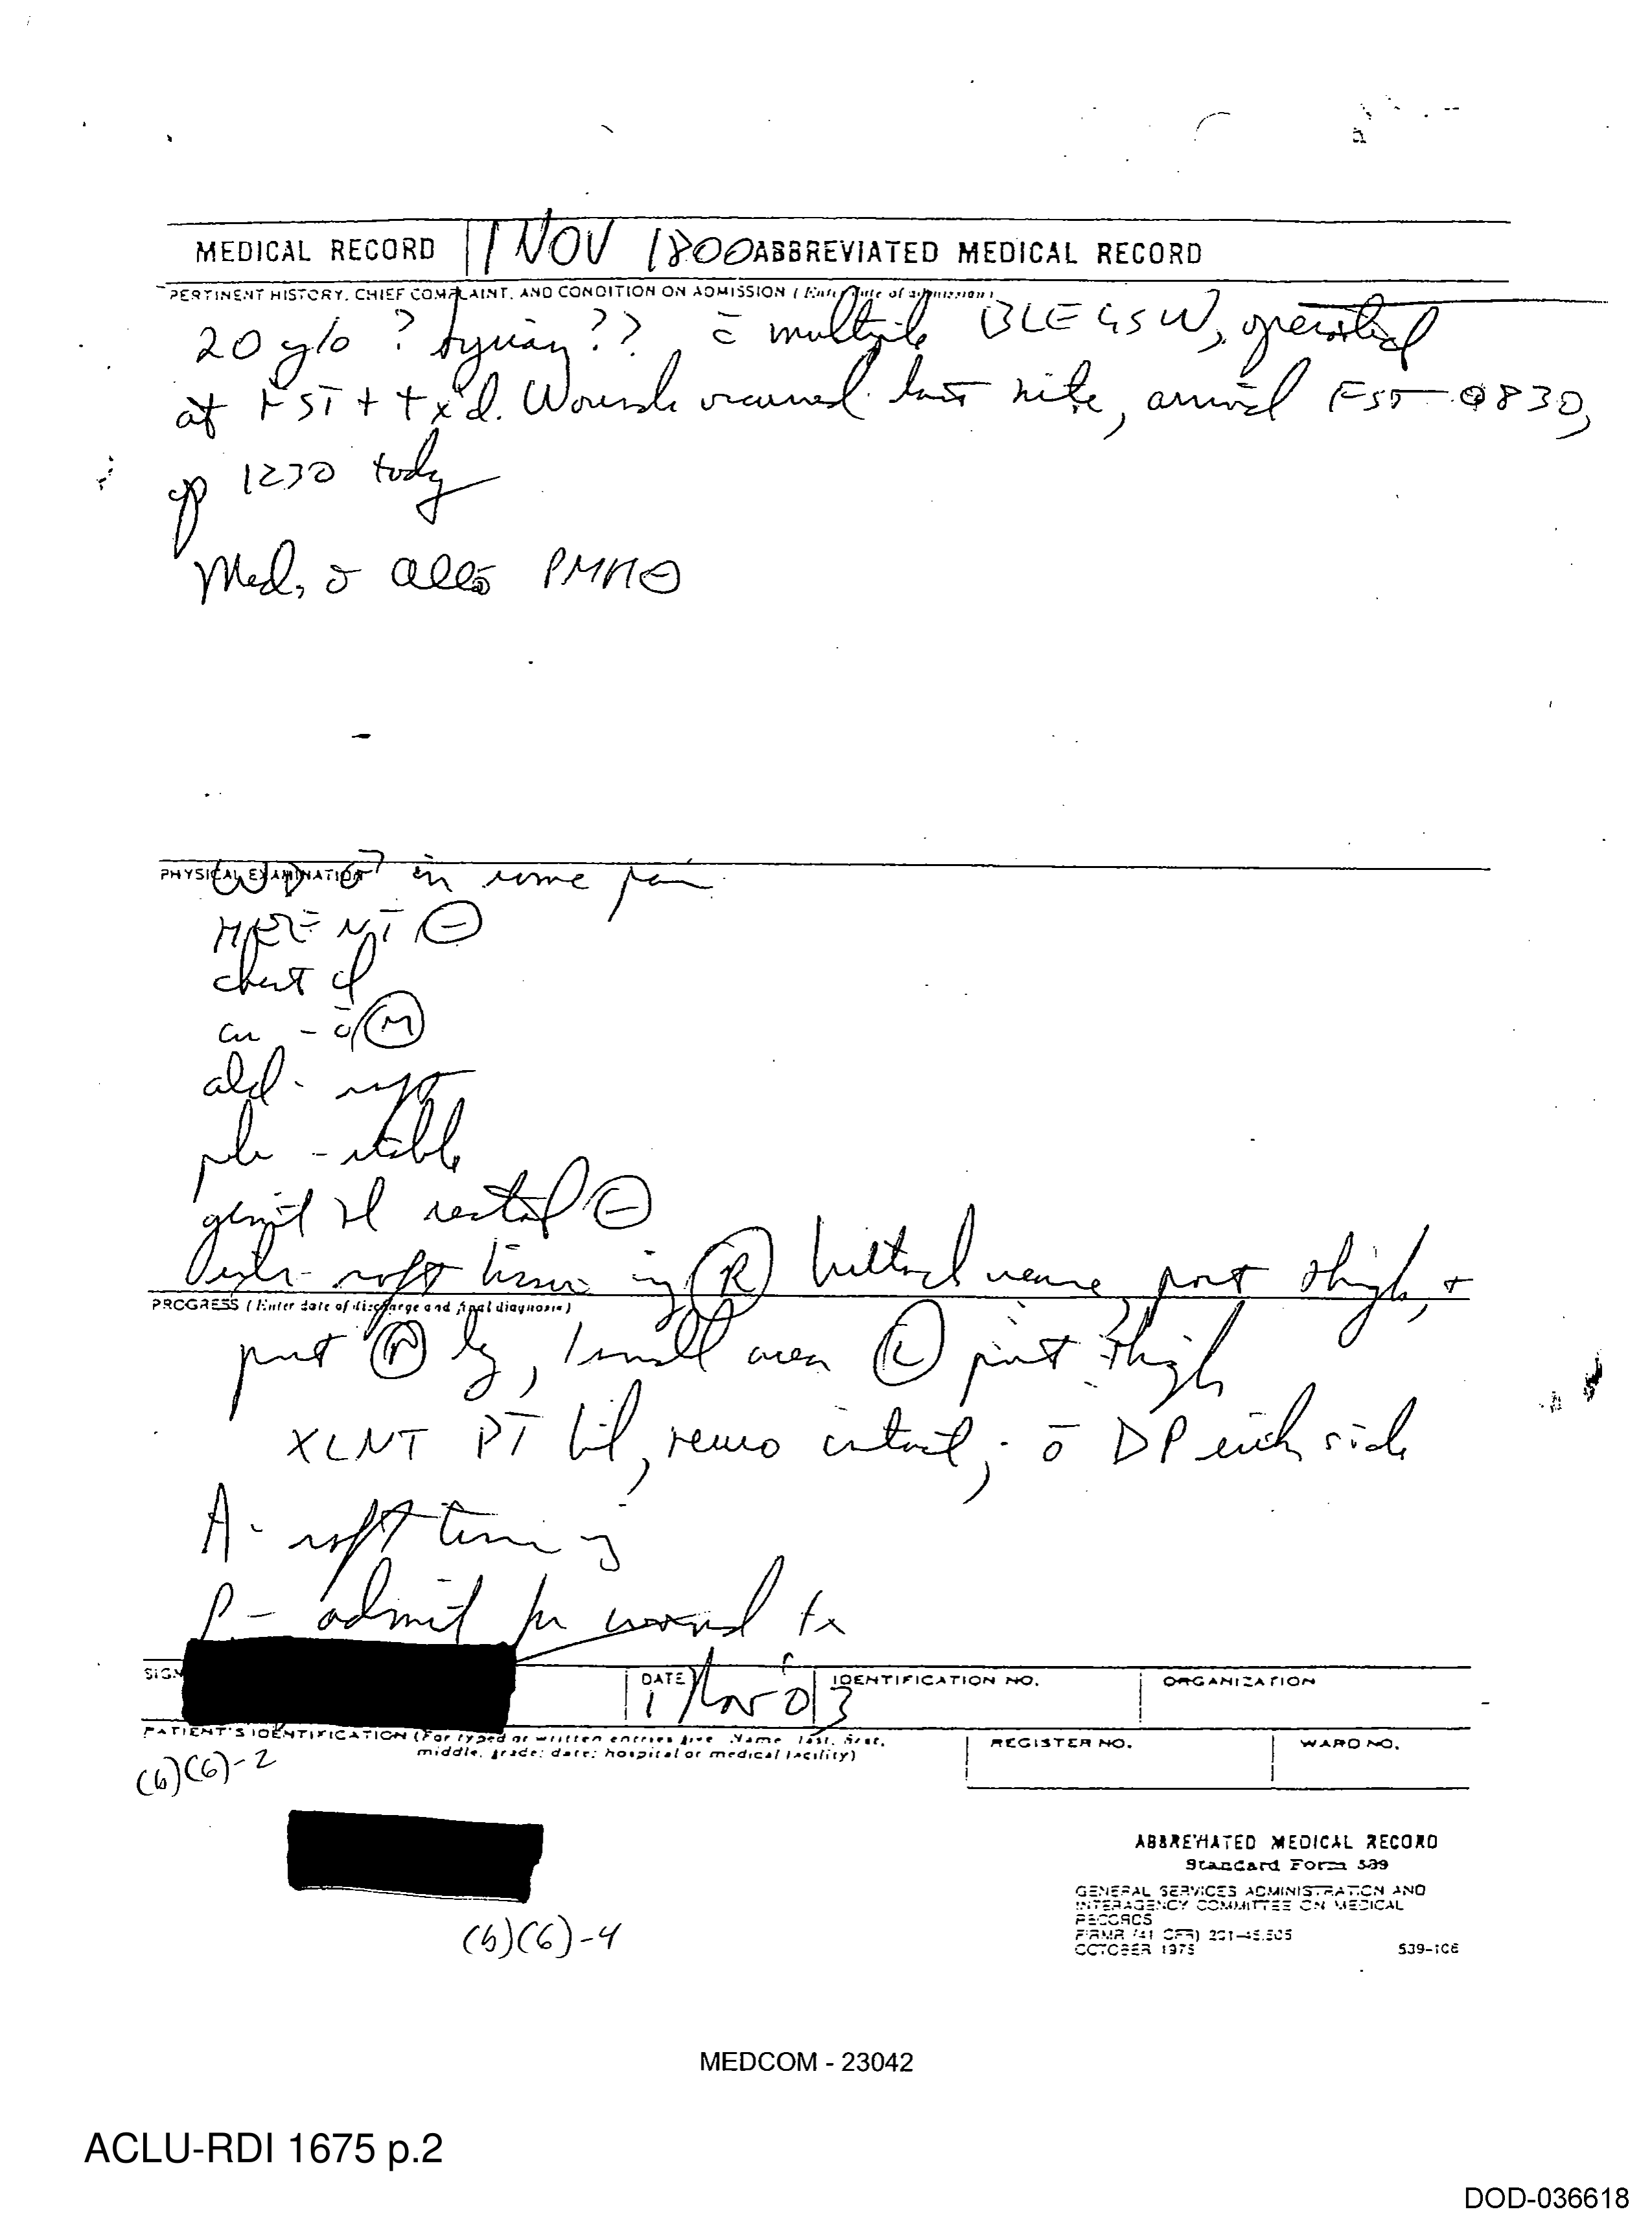 MEDICAL RECORD 1 NOV 1800 ABBREVIATED MEDICAL RECORD
PERTINENT HISTORY, CHIEF COMPLAINT, AND CONDITION ON ADMISSION (Enter date of admission)
20 y/o ? Syrian ?? c̄ multiple BLE GSW, operated
at FST + tx'd. Wounds occurred last nite, arrived FST 0830,
op 1230 today
Med, ō all's PMH ⊖
PHYSICAL EXAMINATION
WD ♂ in some pain
HEENT ⊖
chest cl
cor - ō Ⓜ
abd - soft
pelv - stable
genit nl rectal ⊖
soft tissue inj Ⓡ buttock post thigh, +
PROGRESS (Enter date of discharge and final diagnosis)
post Ⓡ leg, 1 small area Ⓛ post thigh
XLNT PT bil, neuro intact; ō DP each side
A - soft tissue inj
P - admit for wound tx
SIGN
DATE
1 Nov 03
IDENTIFICATION NO.
ORGANIZATION
PATIENT'S IDENTIFICATION (For typed or written entries give Name last, first,
middle, grade; date; hospital or medical facility)
REGISTER NO.
WARD NO.
(b)(6)-2
(b)(6)-4
ABBREVIATED MEDICAL RECORD
Standard Form 539
GENERAL SERVICES ADMINISTRATION AND
INTERAGENCY COMMITTEE ON MEDICAL
RECORDS
FIRMR (41 CFR) 201-45.505
OCTOBER 1975
539-106
MEDCOM - 23042
ACLU-RDI 1675 p.2
DOD-036618